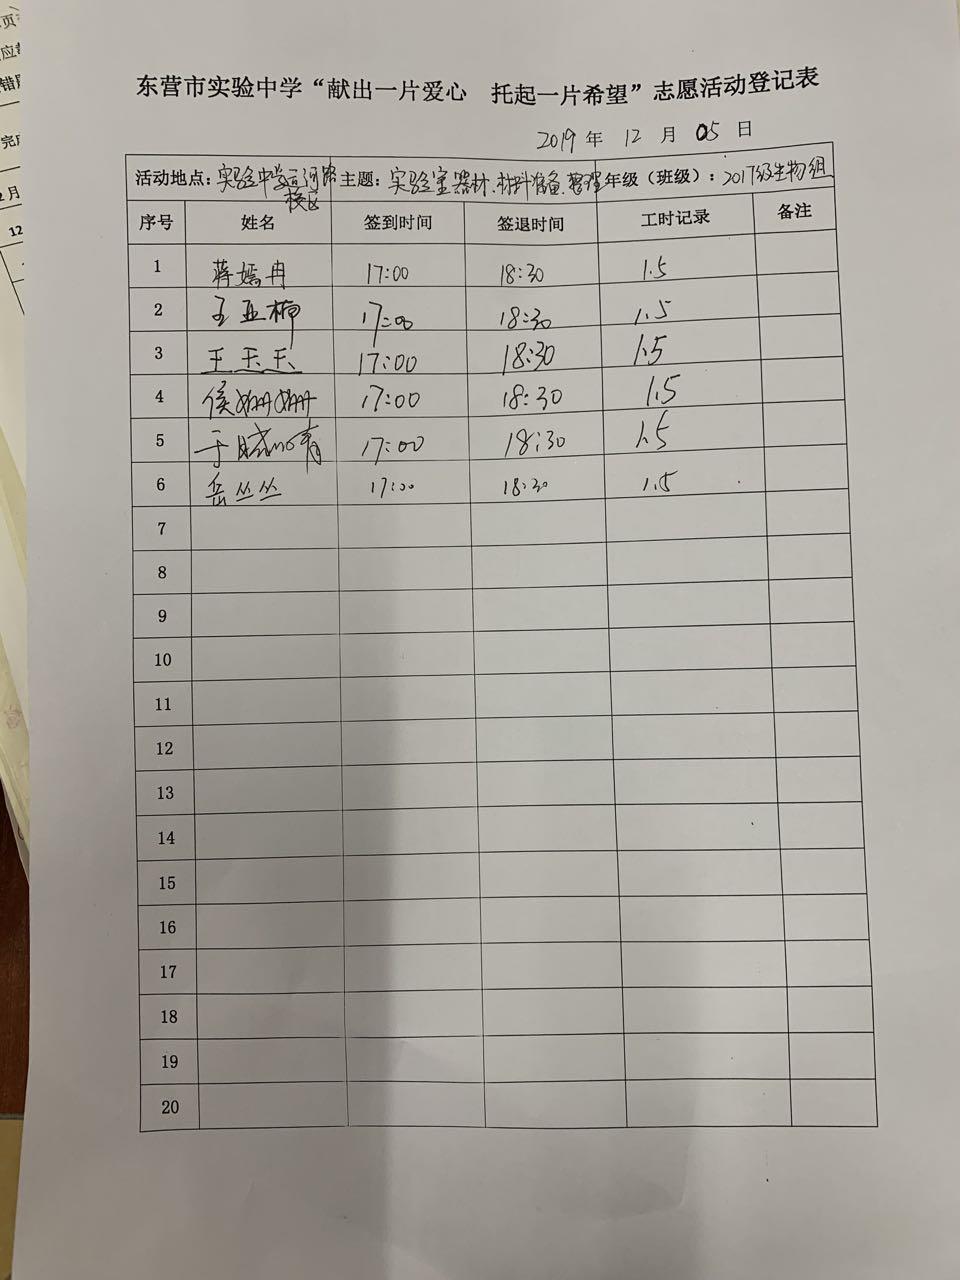 东营市实验中学“献出一片爱心 托起一片希望”志愿活动登记表
2019 年 12 月 05 日
活动地点：实验中学运河路校区 主题：实验室器材、材料准备、管理 年级（班级）：2017级生物组
序号 姓名 签到时间 签退时间 工时记录 备注
1 蒋嫣冉 17:00 18:30 1.5
2 王亚柳 17:00 18:30 1.5
3 王天天 17:00 18:30 1.5
4 侯姗姗 17:00 18:30 1.5
5 于晓青 17:00 18:30 1.5
6 岳丛丛 17:00 18:30 1.5
7
8
9
10
11
12
13
14
15
16
17
18
19
20